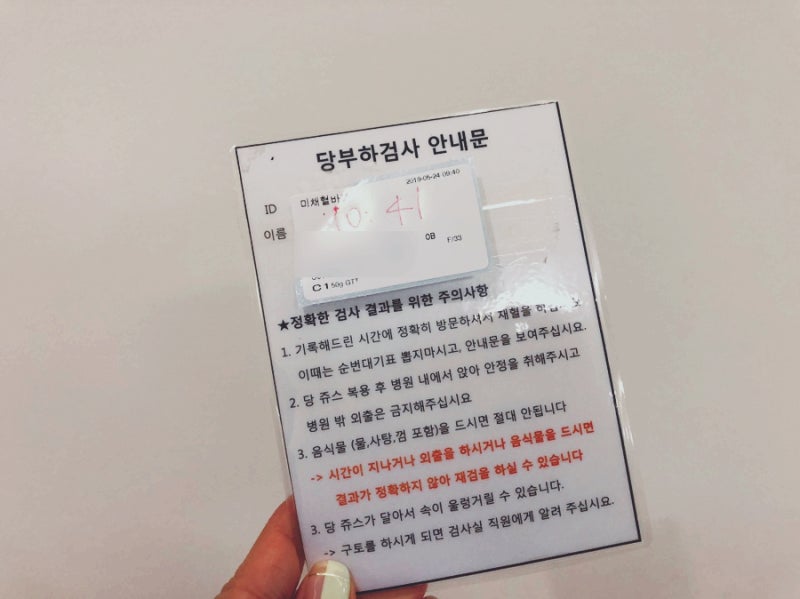 당부하검사 안내문
2019-05-24 09:40
ID 미채혈바
10:41
이름
OB F/33
C 1 50g GTT
★정확한 검사 결과를 위한 주의사항
1. 기록해드린 시간에 정확히 방문하셔서 채혈을
이때는 순번대기표 뽑지마시고, 안내문을 보여주십시요.
2. 당 쥬스 복용 후 병원 내에서 앉아 안정을 취해주시고
병원 밖 외출은 금지해주십시요
3. 음식물 (물,사탕,껌 포함)을 드시면 절대 안됩니다
-> 시간이 지나거나 외출을 하시거나 음식물을 드시면
결과가 정확하지 않아 재검을 하실 수 있습니다
3. 당 쥬스가 달아서 속이 울렁거릴 수 있습니다.
-> 구토를 하시게 되면 검사실 직원에게 알려 주십시요.